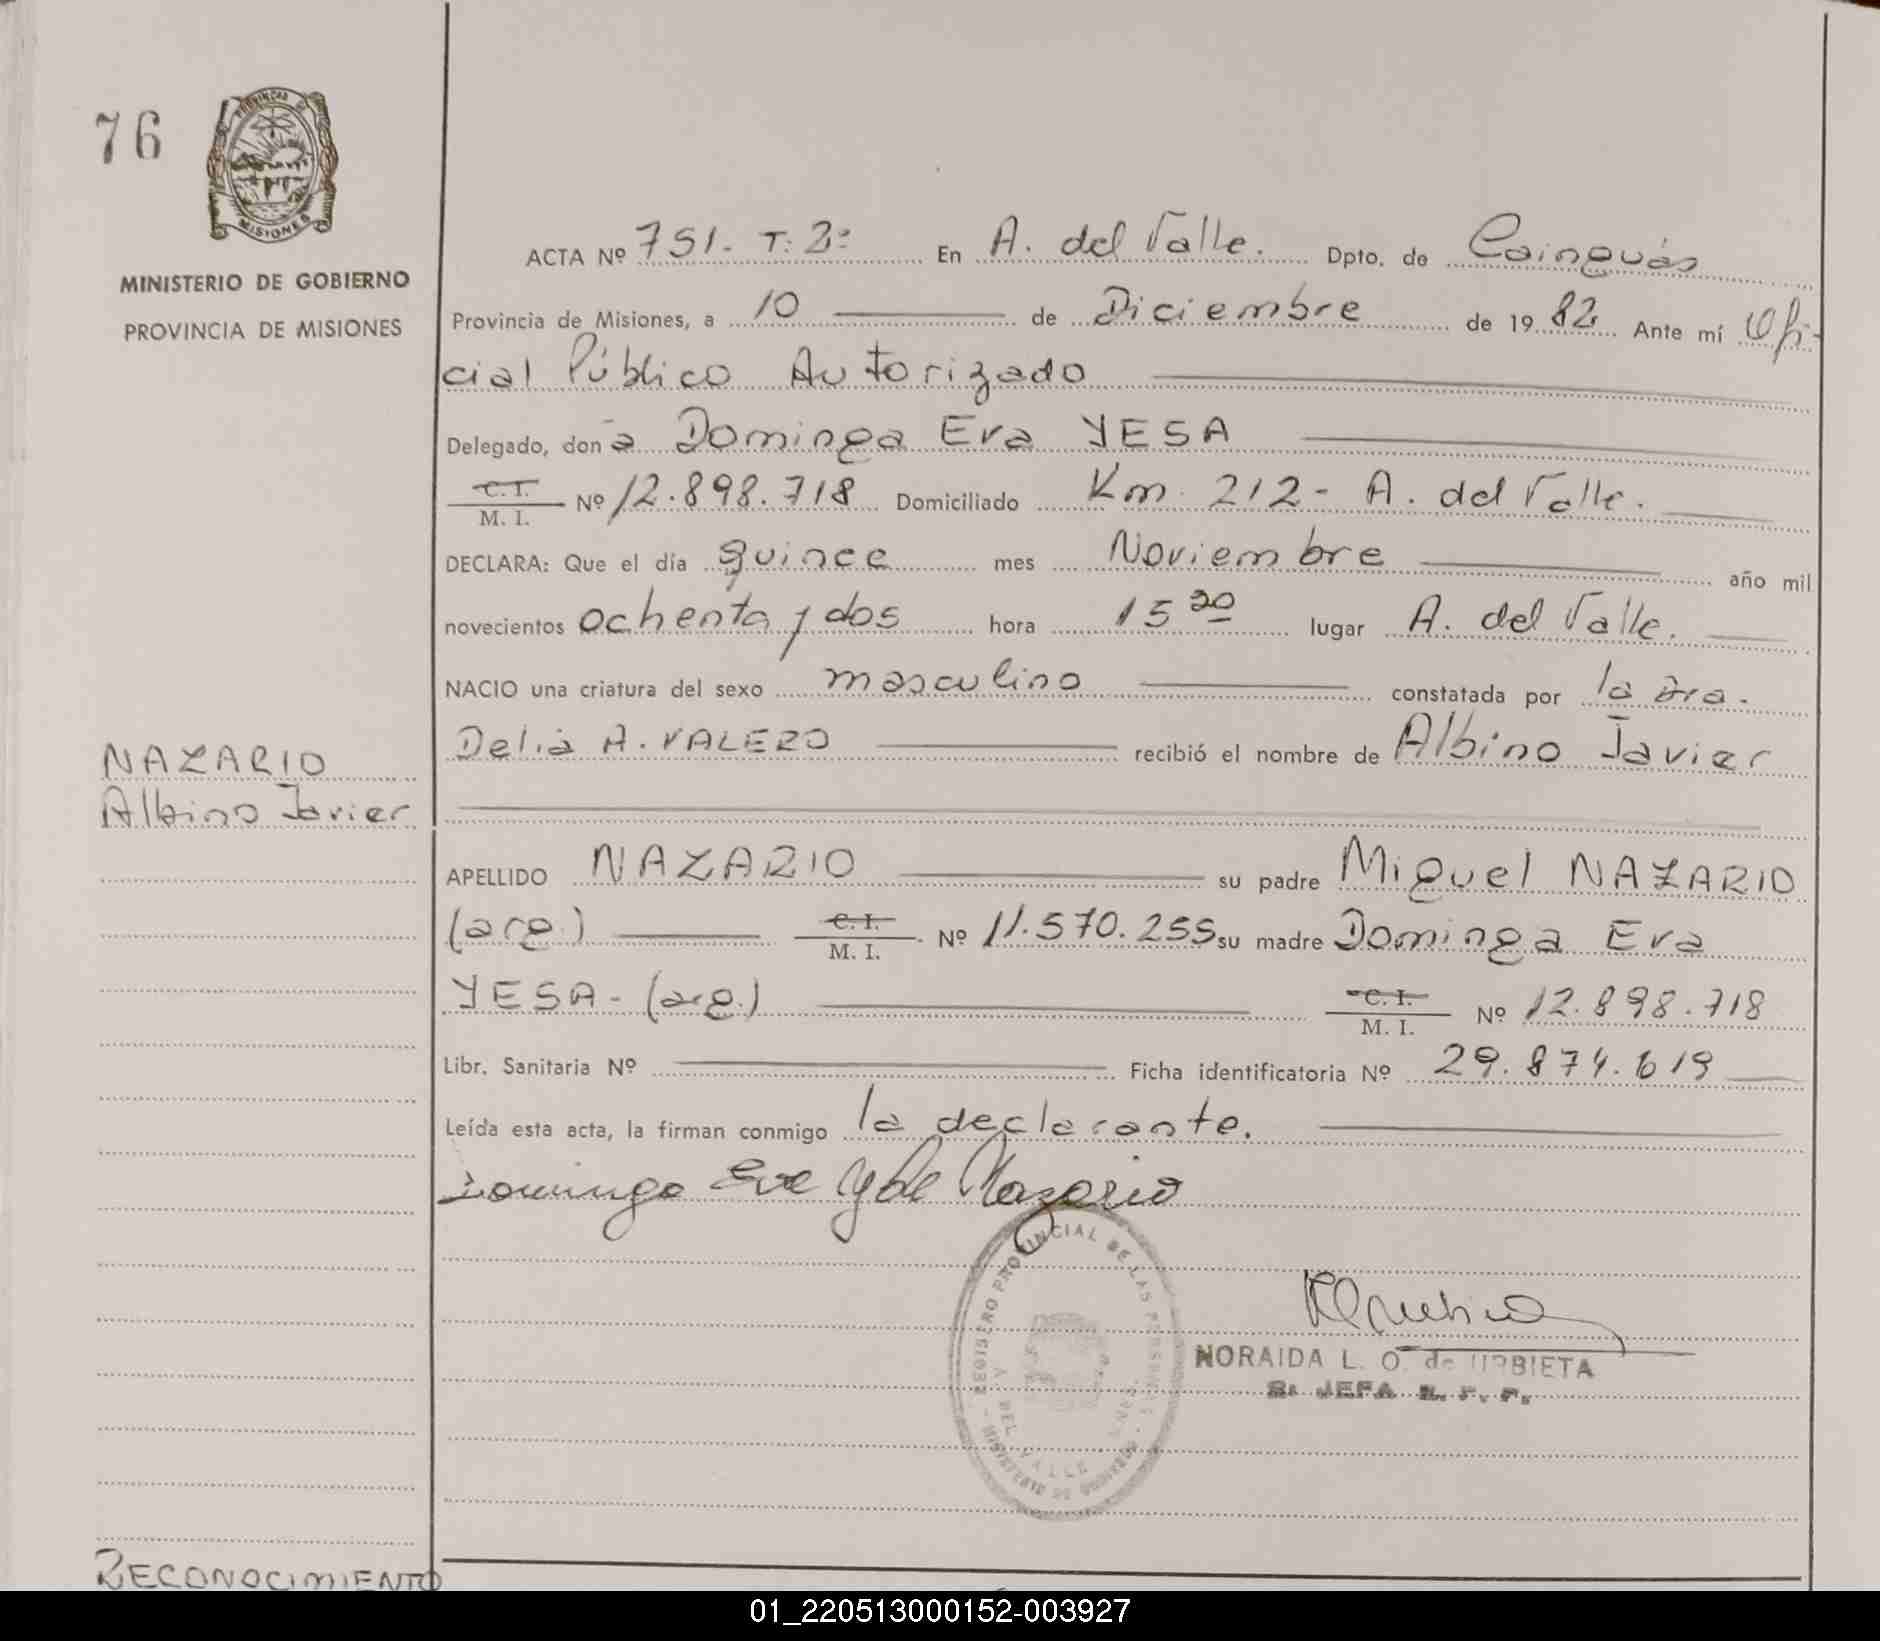 76
PROVINCIA DE
MISIONES
MINISTERIO DE GOBIERNO
PROVINCIA DE MISIONES
ACTA Nº 751. T: 2º En A. del Valle. Dpto. de Cainguás
Provincia de Misiones, a 10 de Diciembre de 1982 Ante mí Ofi-
cial Público Autorizado
Delegado, don a Dominga Eva YESA
C. I.
M. I. Nº 12.898.718 Domiciliado Km. 212 - A. del Valle.
DECLARA: Que el día quince mes Noviembre año mil
novecientos ochenta y dos hora 15 20 lugar A. del Valle.
NACIO una criatura del sexo masculino constatada por la Dra.
Delia A. VALERO recibió el nombre de Albino Javier
NAZARIO
Albino Javier
APELLIDO NAZARIO su padre Miguel NAZARIO
(arg.) C. I. M. I. Nº 11.570.255 su madre Dominga Eva
YESA - (arg.) C. I. M. I. Nº 12.898.718
Libr. Sanitaria Nº Ficha identificatoria Nº 29.874.619
Leída esta acta, la firman conmigo la declarante.
Dominga Eva Y de Nazario
REGISTRO PROVINCIAL DE LAS PERSONAS - MINISTERIO DE GOBIERNO
A. DEL VALLE
NORAIDA L. O. de URBIETA
JEFA R. P. P.
RECONOCIMIENTO
01_220513000152-003927